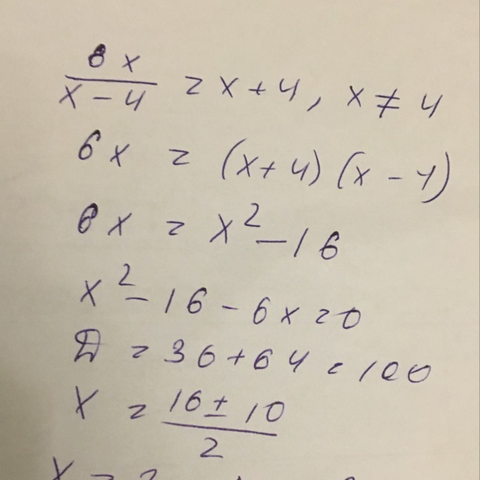 6x / x - 4 = x + 4, x ≠ 4
6x = (x + 4) (x - 4)
6x = x² - 16
x² - 16 - 6x = 0
D = 36 + 64 = 100
x = 16 ± 10 / 2